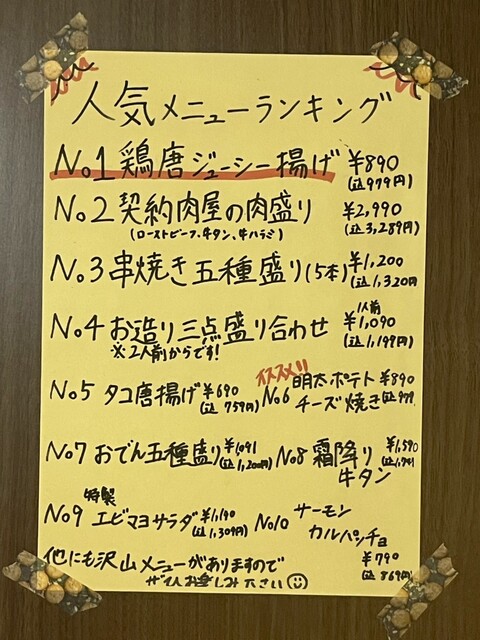 人気メニューランキング
No.1 鶏唐ジューシー揚げ ¥890
(込979円)
No.2 契約肉屋の肉盛り ¥2,990
(ローストビーフ、牛タン、牛ハラミ) (込3,289円)
No.3 串焼き五種盛り(5本) ¥1,200
(込1,320円
1人前
No.4 お造り三点盛り合わせ ¥1,090
※2人前からです! (込1,199円)
オススメ!!
No.5 タコ唐揚げ ¥690 (込759円) No.6 明太ポテトチーズ焼き ¥890 (込979
No.7 おでん五種盛り ¥1,091 (込1,200円) No.8 霜降り牛タン ¥1,590
特製
No.9 エビマヨサラダ ¥1,190 (込1,309円) No.10 サーモンカルパッチョ
¥790
(込869円)
他にも沢山メニューがありますので
ぜひお楽しみ下さい